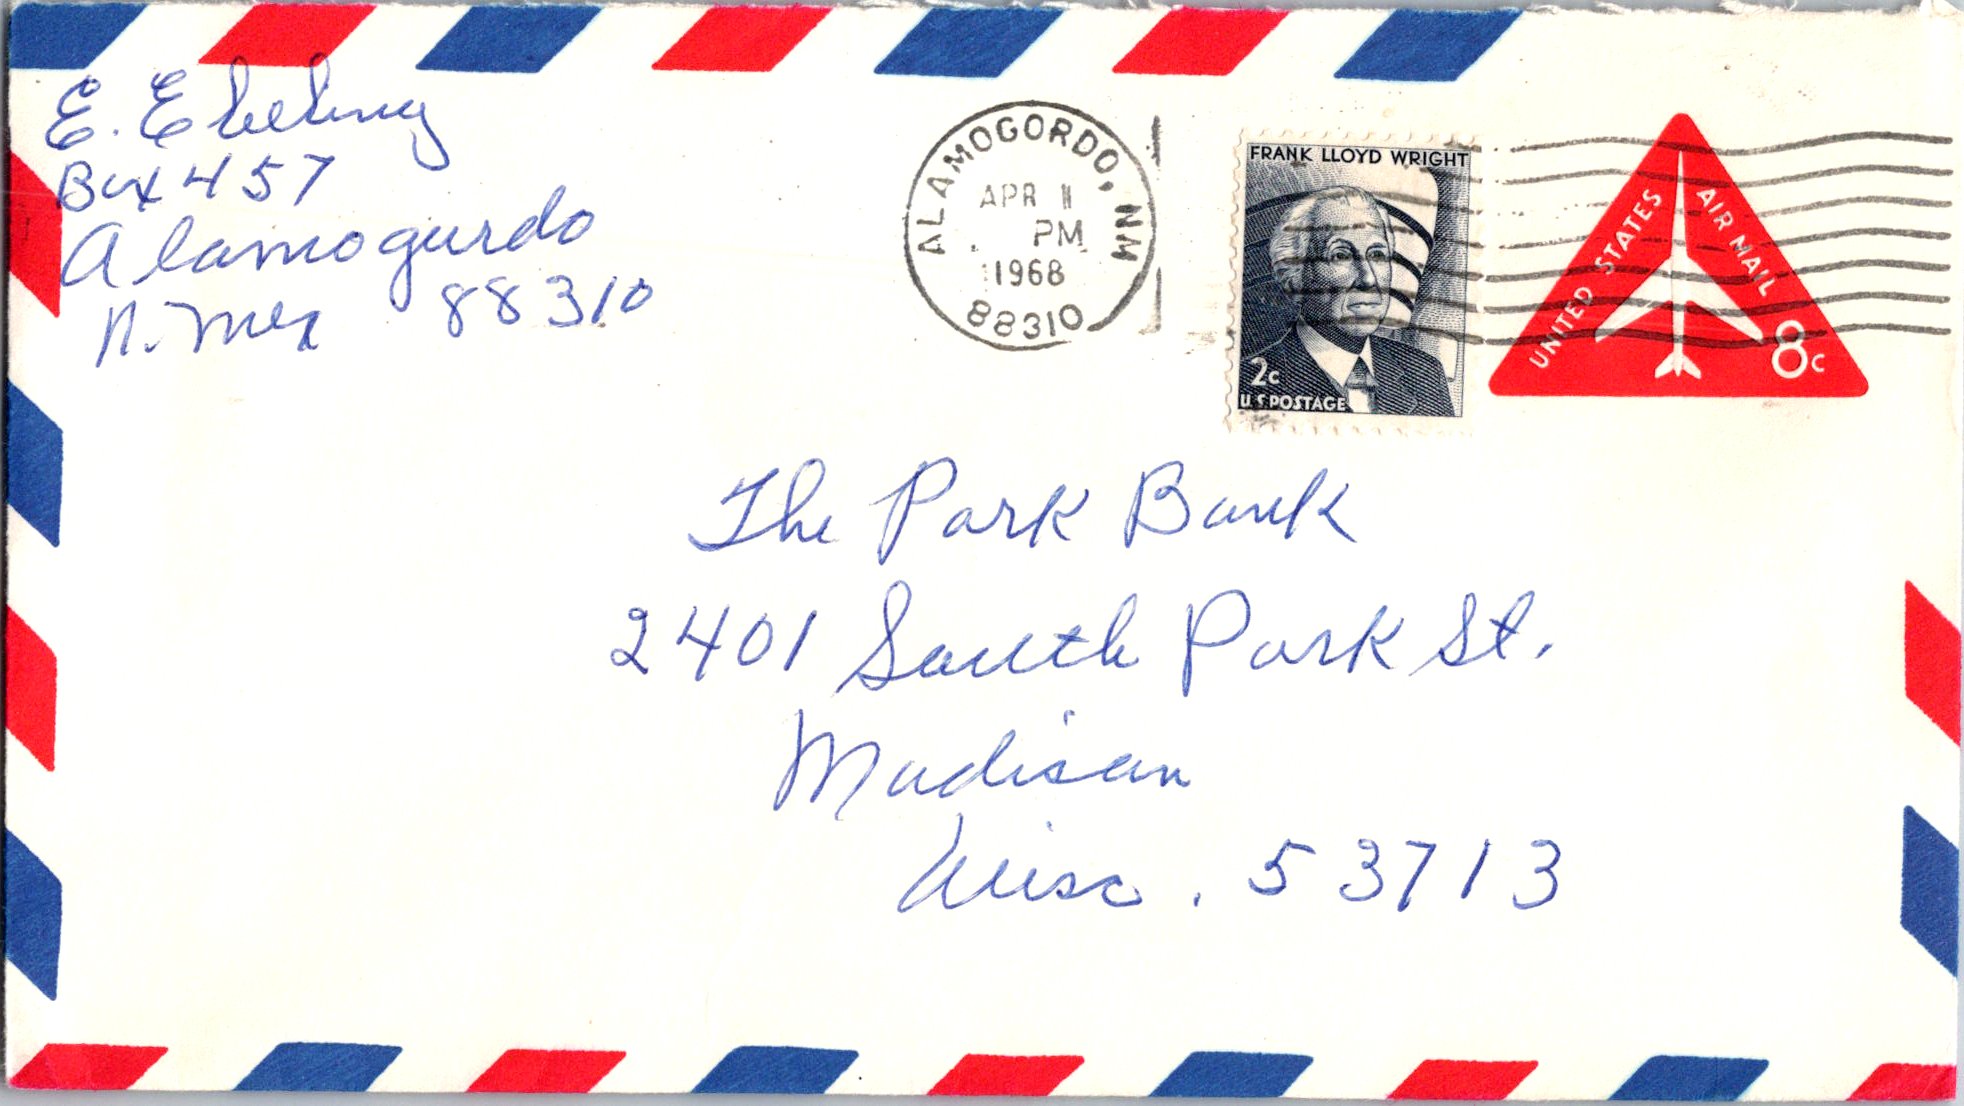 E. Ebeling
Box 457
Alamogordo
N. Mex 88310
ALAMOGORDO, NM
APR 11
PM
1968
88310
FRANK LLOYD WRIGHT
2c
U.S. POSTAGE
UNITED STATES
AIR MAIL
8c
The Park Bank
2401 South Park St.
Madison
Wisc. 53713